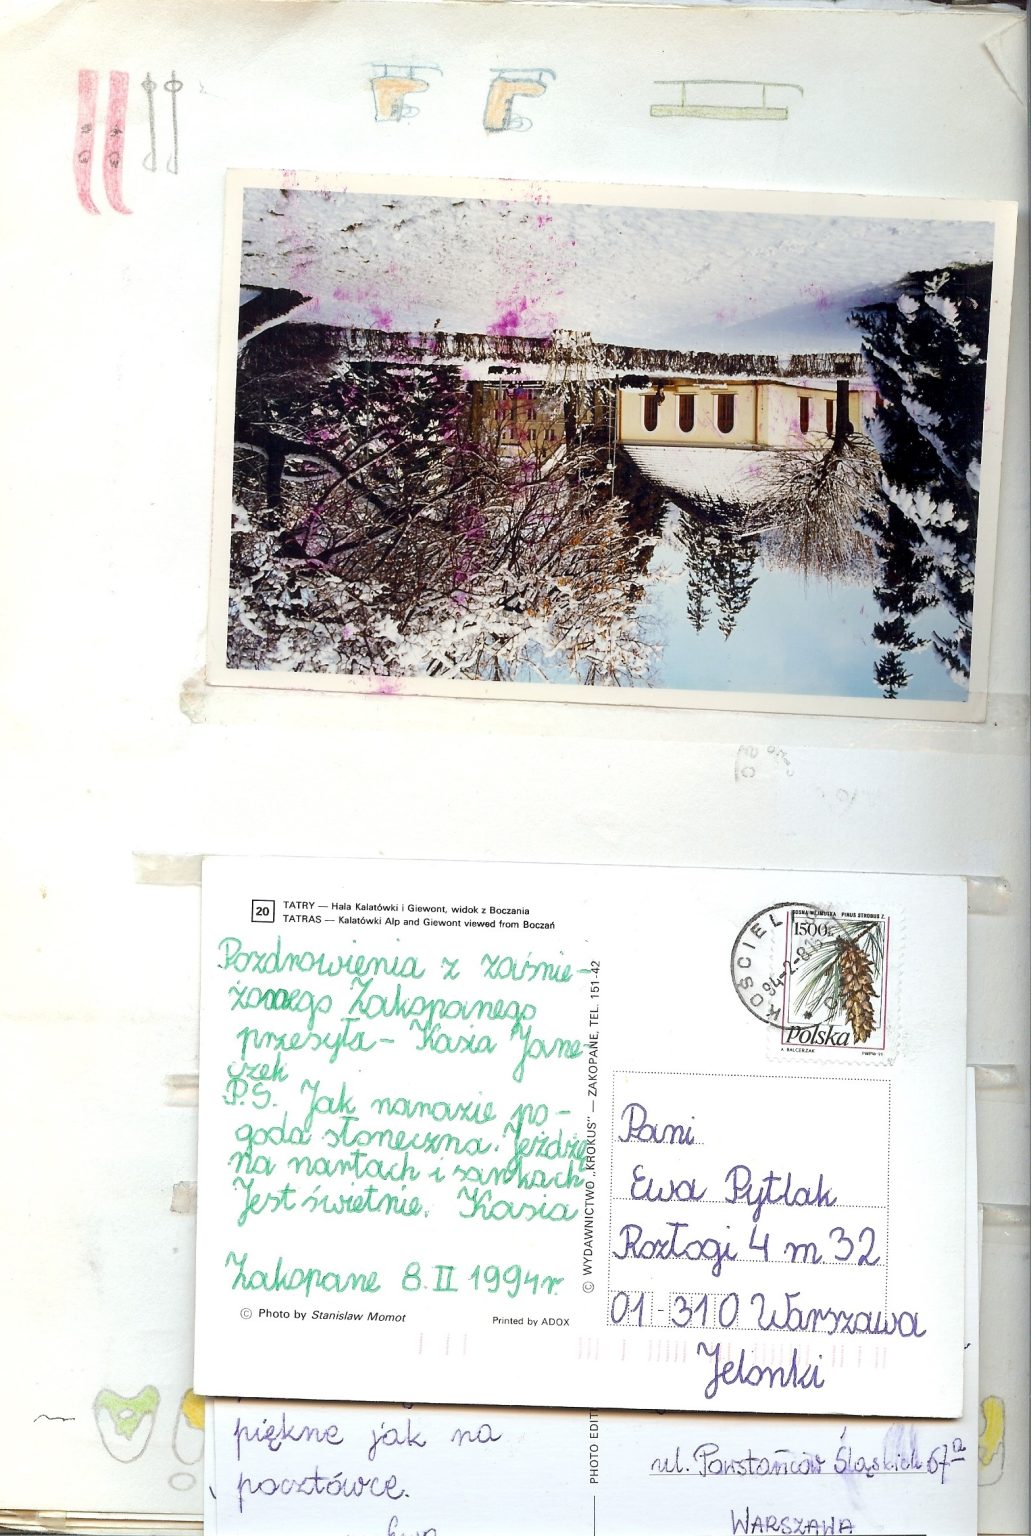 20
TATRY — Hala Kalatówki i Giewont, widok z Boczania
TATRAS — Kalatówki Alp and Giewont viewed from Boczań
Pozdrowienia z zaśnie-
żonego Zakopanego
przesyła - Kasia Jane-
czek
P.S. Jak narazie po-
goda słoneczna. Jeżdżę
na nartach i sankach.
Jest świetnie. Kasia
Zakopane 8.II 1994r.
© Photo by Stanisław Momot
Printed by ADOX
© WYDAWNICTWO „KROKUS" — ZAKOPANE, TEL. 151-42
KOŚCIEL
94-2-8
SOSNA WEJMUTKA PINUS STROBUS L.
1500zł
Polska
A. BALCERZAK
PWPW
Pani
Ewa Pytlak
Rozłogi 4 m. 32
01-310 Warszawa
Jelonki
piękne jak na
pocztówce.
Ewa
PHOTO EDIT
ul. Powstańców Śląskich 67a
WARSZAWA